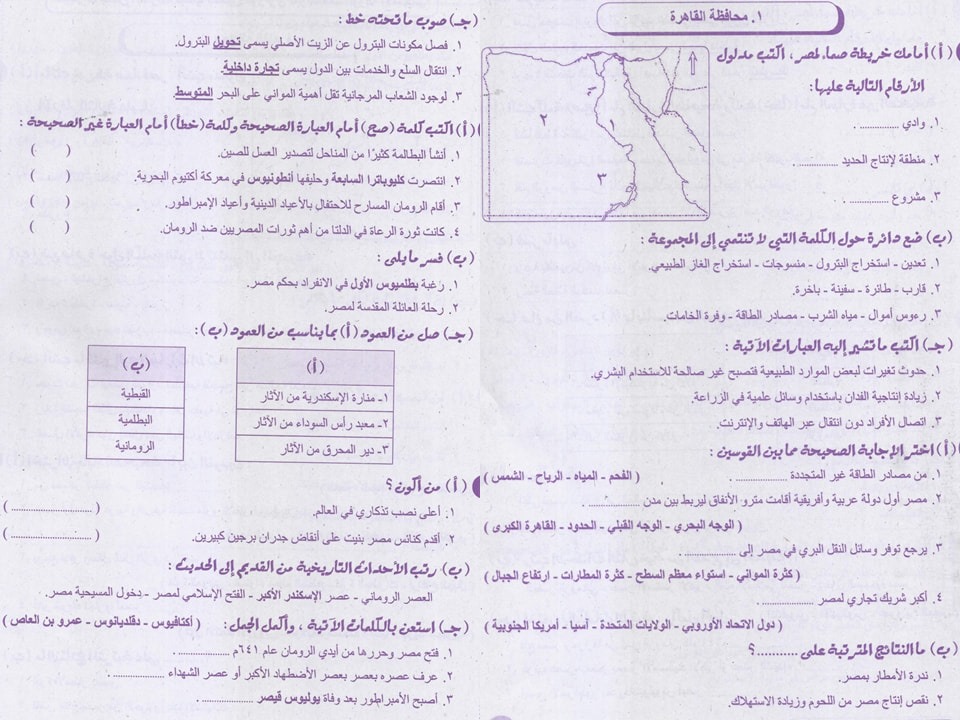 ١. محافظة القاهرة
(أ) أمامك خريطة صماء لمصر، اكتب مدلول
الأرقام التالية عليها:
١. وادي ............ .
٢. منطقة لإنتاج الحديد ............
٣. مشروع ............ .
١
٢
٣
(ب) ضع دائرة حول الكلمة التي لا تنتمي إلى المجموعة :
١. تعدين - استخراج البترول - منسوجات - استخراج الغاز الطبيعي.
٢. قارب - طائرة - سفينة - باخرة.
٣. رءوس أموال - مياه الشرب - مصادر الطاقة - وفرة الخامات.
(جـ) اكتب ما تشير إليه العبارات الآتية :
١. حدوث تغيرات لبعض الموارد الطبيعية فتصبح غير صالحة للاستخدام البشري.
٢. زيادة إنتاجية الفدان باستخدام وسائل علمية في الزراعة.
٣. اتصال الأفراد دون انتقال عبر الهاتف والإنترنت.
(أ) اختر الإجابة الصحيحة مما بين القوسين :
١. من مصادر الطاقة غير المتجددة ............ . ( الفحم - المياه - الرياح - الشمس )
٢. مصر أول دولة عربية وأفريقية أقامت مترو الأنفاق ليربط بين مدن ............ .
( الوجه البحري - الوجه القبلي - الحدود - القاهرة الكبرى )
٣. يرجع توفر وسائل النقل البري في مصر إلى ............ .
( كثرة المواني - استواء معظم السطح - كثرة المطارات - ارتفاع الجبال )
٤. أكبر شريك تجاري لمصر ............ .
( دول الاتحاد الأوروبي - الولايات المتحدة - آسيا - أمريكا الجنوبية )
(ب) ما النتائج المترتبة على ............؟
١. ندرة الأمطار بمصر.
٢. نقص إنتاج مصر من اللحوم وزيادة الاستهلاك.
(جـ) صوب ما تحته خط :
١. فصل مكونات البترول عن الزيت الأصلي يسمى تحويل البترول.
٢. انتقال السلع والخدمات بين الدول يسمى تجارة داخلية
٣. لوجود الشعاب المرجانية تقل أهمية المواني على البحر المتوسط
(أ) اكتب كلمة (صح) أمام العبارة الصحيحة وكلمة (خطأ) أمام العبارة غير الصحيحة :
١. أنشأ البطالمة كثيرًا من المناحل لتصدير العسل للصين. ( )
٢. انتصرت كليوباترا السابعة وحليفها أنطونيوس في معركة أكتيوم البحرية. ( )
٣. أقام الرومان المسارح للاحتفال بالأعياد الدينية وأعياد الإمبراطور. ( )
٤. كانت ثورة الرعاة في الدلتا من أهم ثورات المصريين ضد الرومان. ( )
(ب) فسر ما يلى :
١. رغبة بطلميوس الأول في الانفراد بحكم مصر.
٢. رحلة العائلة المقدسة لمصر.
(جـ) صل من العمود (أ) بما يناسب من العمود (ب) :
(أ) (ب)
١- منارة الإسكندرية من الآثار القبطية
٢- معبد رأس السوداء من الآثار البطلمية
٣- دير المحرق من الآثار الرومانية
(أ) من أكون ؟
١. أعلى نصب تذكاري في العالم. (............)
٢. أقدم كنائس مصر بنيت على أنقاض جدران برجين كبيرين. (............)
(ب) رتب الأحداث التاريخية من القديم إلى الحديث :
العصر الروماني - عصر الإسكندر الأكبر - الفتح الإسلامي لمصر - دخول المسيحية مصر.
(جـ) استعن بالكلمات الآتية ، وأكمل الجمل : ( أكتافيوس - دقلديانوس - عمرو بن العاص )
١. فتح مصر وحررها من أيدي الرومان عام ٦٤١م ............ .
٢. عرف عصره بعصر بعصر الأضطهاد الأكبر أو عصر الشهداء ............ .
٣. أصبح الأمبراطور بعد وفاة يوليوس قيصر ............ .